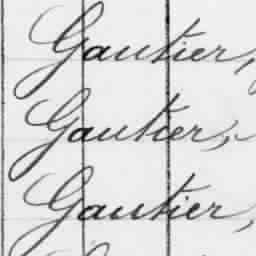 Gautier,
Gautier,
Gautier,